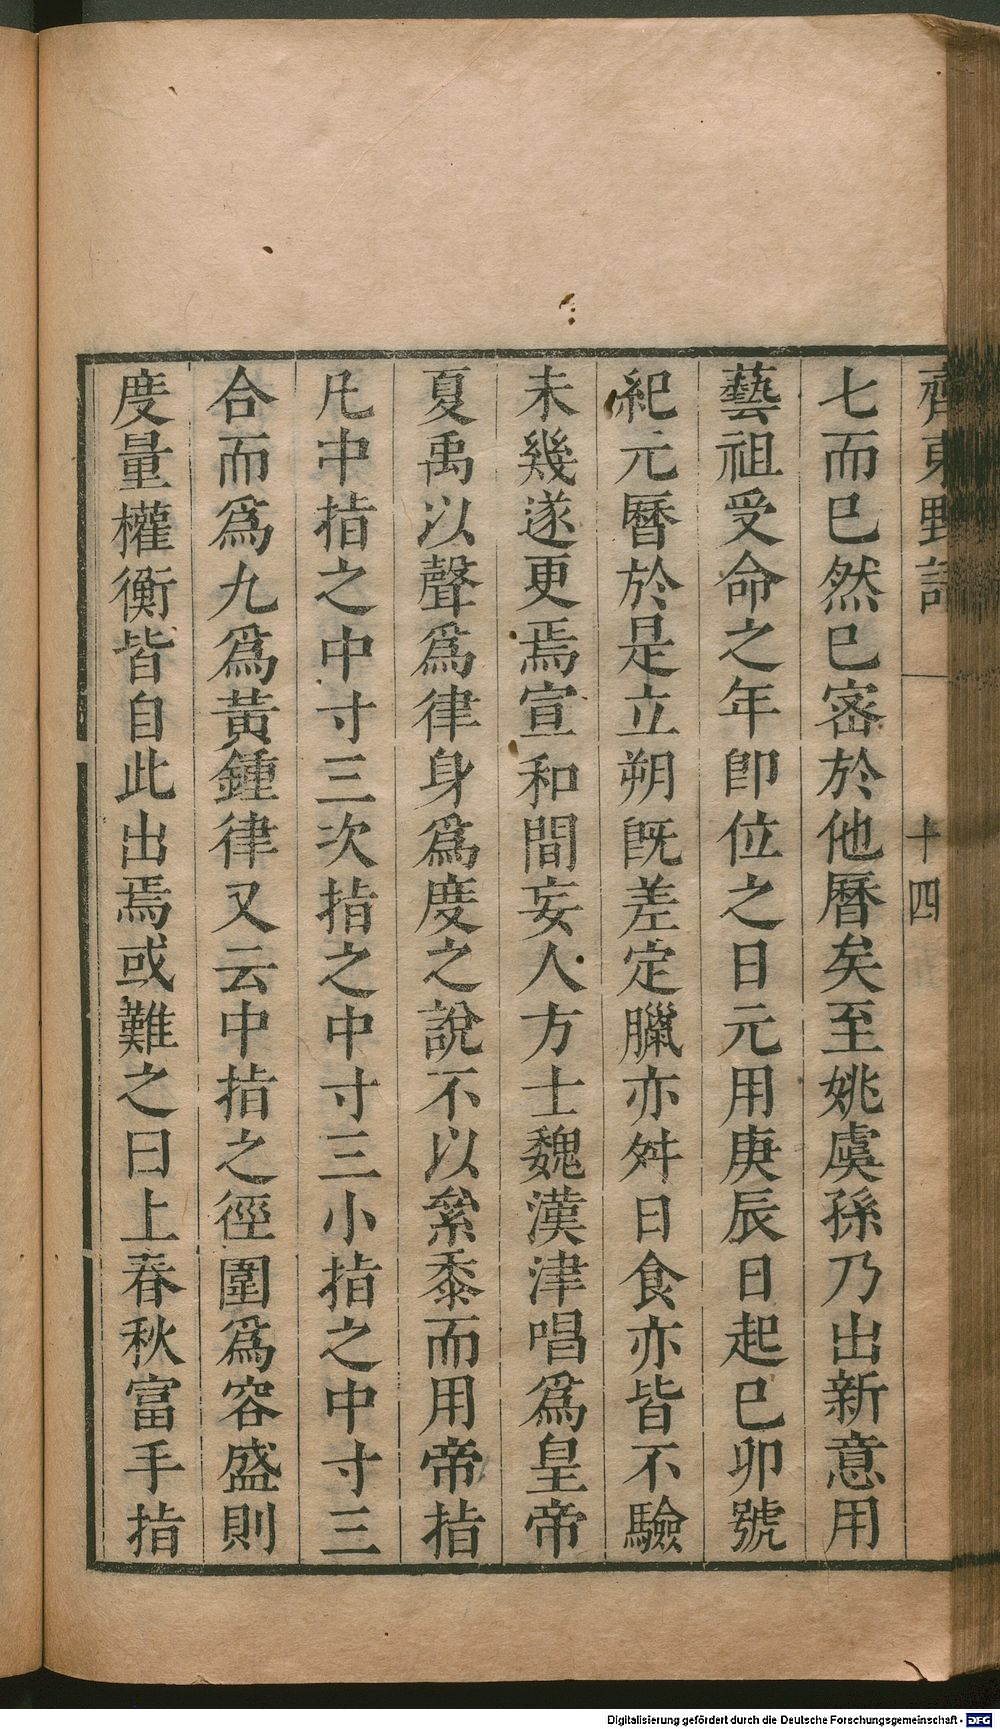 齊東野語
十四
七而已然已密於他曆矣至姚虞孫乃出新意用
藝祖受命之年卽位之日元用庚辰日起己卯號
紀元曆於是立朔旣差定臘亦舛日食亦皆不驗
未幾遂更焉宣和間妄人方士魏漢津唱爲皇帝
夏禹以聲爲律身爲度之說不以絫黍而用帝指
凡中指之中寸三次指之中寸三小指之中寸三
合而爲九爲黃鍾律又云中指之徑圍爲容盛則
度量權衡皆自此出焉或難之曰上春秋富手指
Digitalisierung gefördert durch die Deutsche Forschungsgemeinschaft - DFG